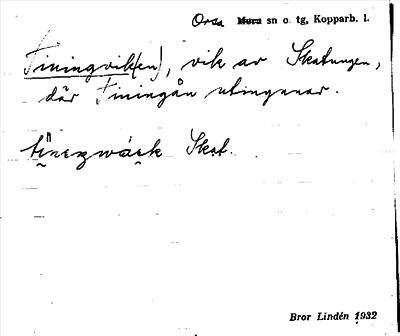 Orsa Mora sn o. tg, Kopparb. l.
Finingvik(en), vik av Skattungen,
där Finingån utmynnar.
Skat.
Bror Lindén 1932